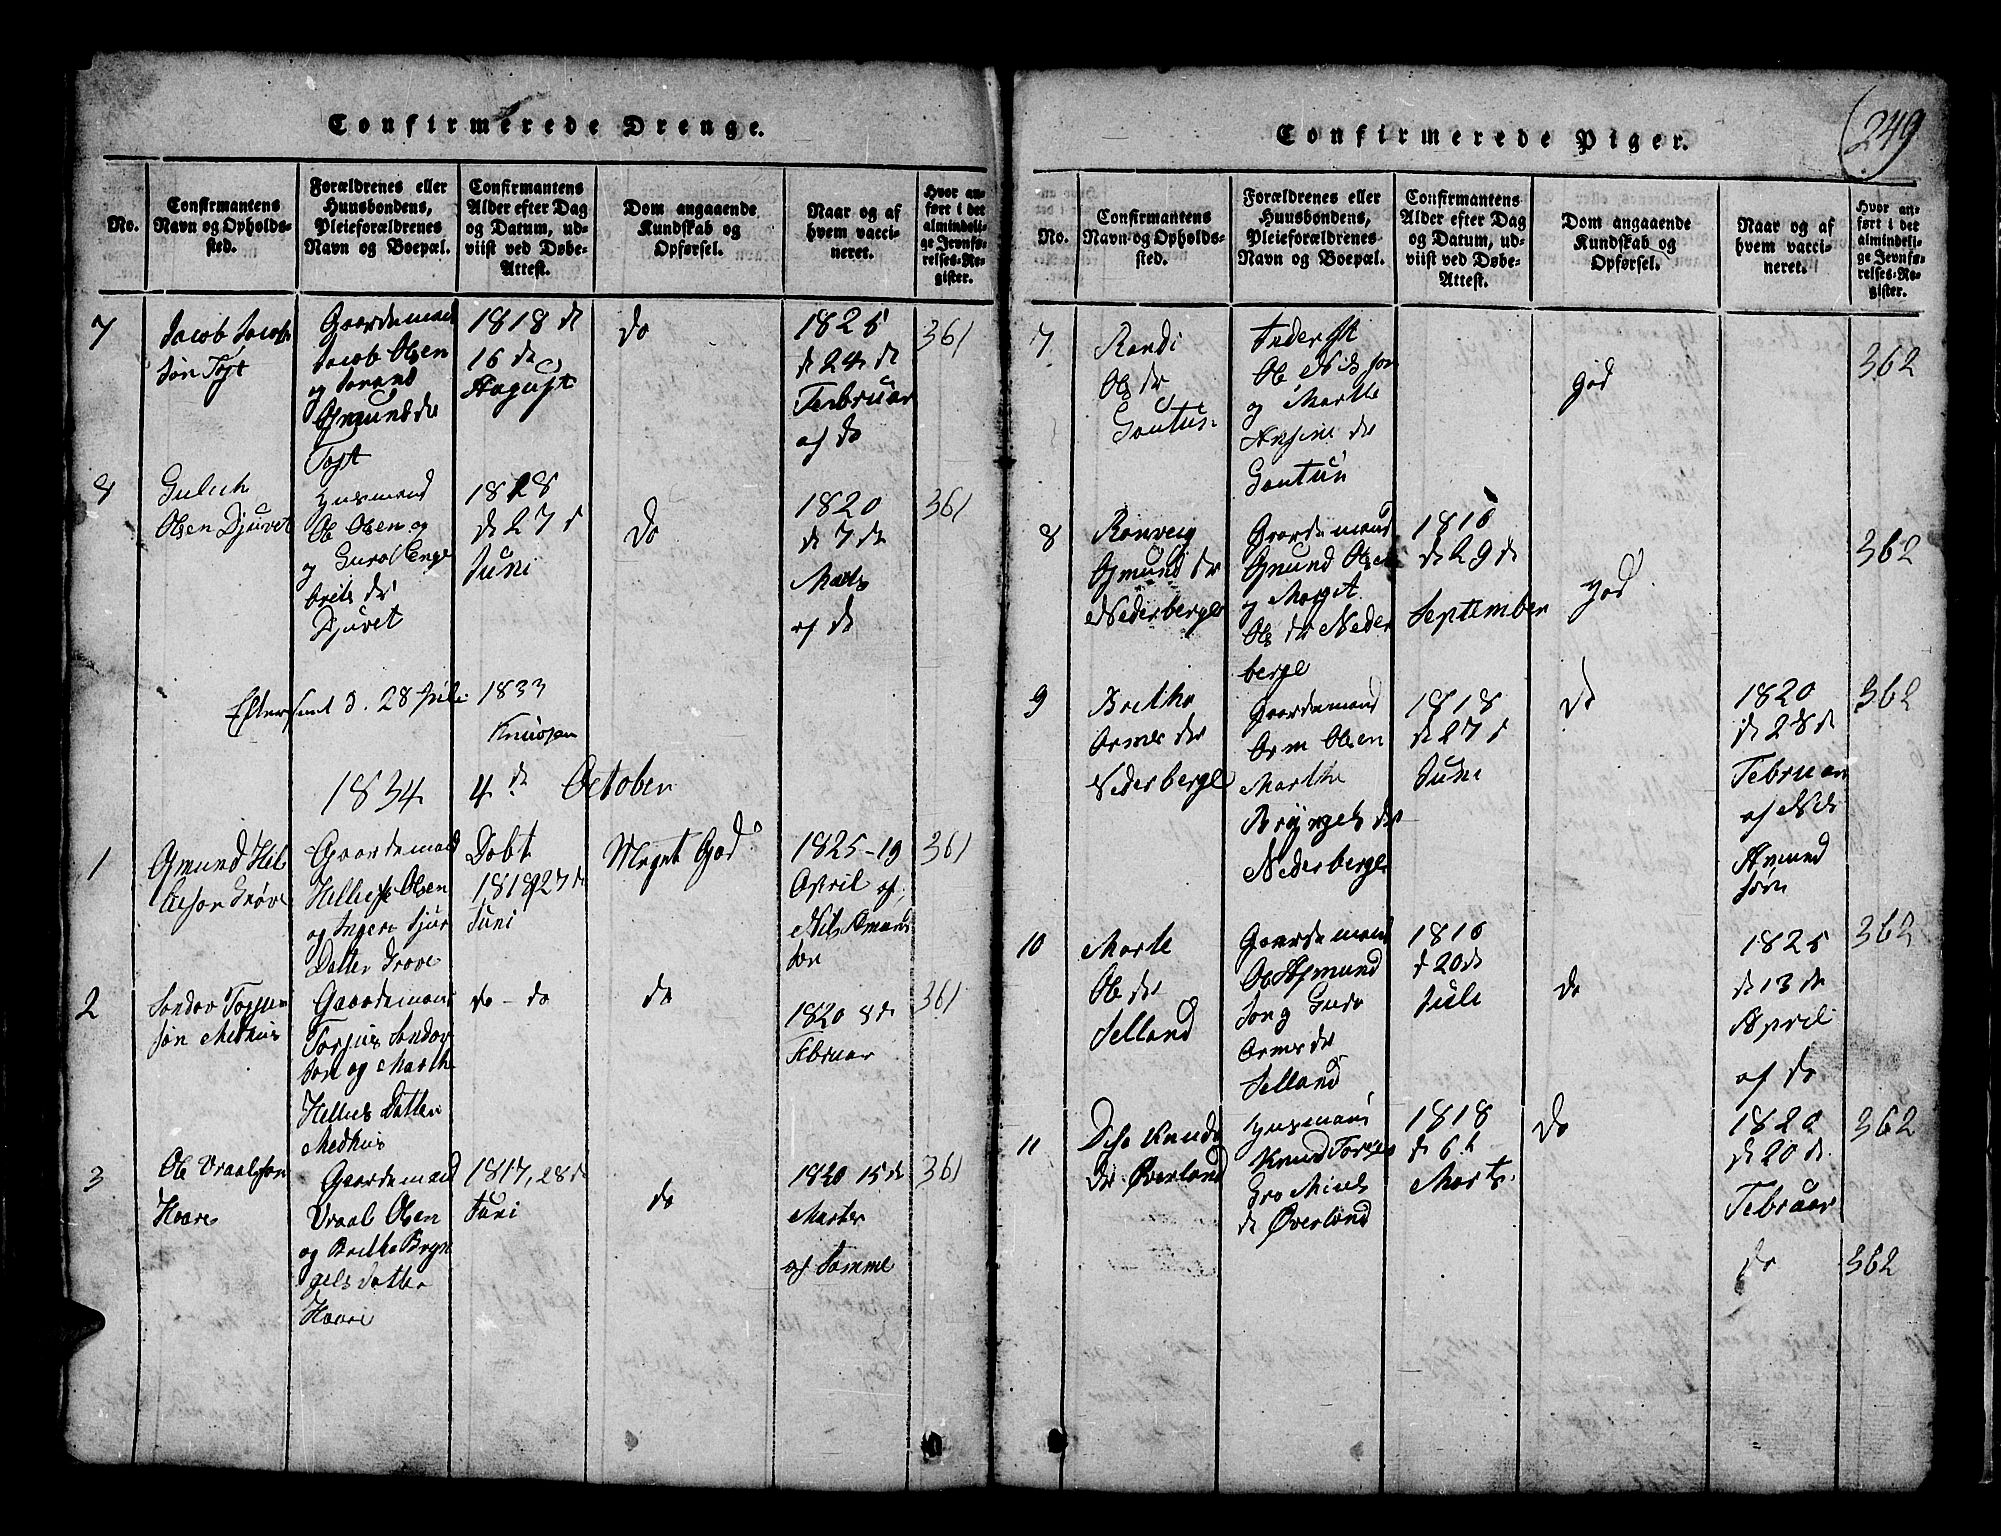 Confirmerede Drenge.
No.
Confirmantens
Navn og Opholds-
sted.
Forældrenes eller
Huusbondens,
Pleieforældrenes
Navn og Boepæl.
Confirmantens
Alder efter Dag
og Datum, ud-
viist ved Døbe-
Attest.
Dom angaaende
Kundskab og
Opførsel.
Naar og af
hvem vacci-
neret.
Hvor an-
ført i det
almindeli-
ge Jevnfø-
relses-Re-
gister.
7
Jacob Jacob
søn Toft
Gaardemand
Jacob Olsen
og
Toft
1818 de
16 de
August
do
1825
de 24 de
Februar
af do
361
8
Gulich
Olsen Djuvet
Husmand
Ole Olsen og
og Guro Enge
brits dr
Djuvet
1818
de 27 d
Juni
do
1820
de 7 de
Marts
af do
361
Efterseet d. 28 Juli 1833
1834 4de October
1
Gmund Hel
Grøve
Gaardemand
Olsen
og Inger Sjur
Datter Grove
Døbt
1818 27 de
Juni
Meget God
1825-19
April af
Nils Omund
søn
361
2
Sondov
søn Medhus
Gaardemand
Torjus Sondov
søn og Marthe
Datter
Medhus
do - do
do
1820 8 de
Februar
361
3
Ole Vraalsson
Haare
Gaardemand
Vraal Olsen
og Britha Bryn
gels datter
Haare
1817, 28 de
Juni
do
1820 15 de
Marts
af Samme
361
Confirmerede Piger.
249
No.
Confirmantens
Navn og Opholds-
sted.
Forældrenes eller
Huusbondens,
Pleieforældrenes
Navn og Boepæl.
Confirmantens
Alder efter Dag
og Datum, ud-
viist ved Døbe-
Attest.
Dom angaaende
Kundskab og
Opførsel.
Naar og af
hvem vacci-
neret.
Hvor an-
ført i det
almindeli-
ge Jevnfø-
relses-Re-
gister.
7
Randi
Ols dr
Gautun
Ole Nilsson
og Marthe
dr
Gautun
god
362
8
Ronveig
Gmund dr
Nederberge
Gaardemand
Gmund Olsen
og Marget
Ols dr Neder
berge
1816
de 29 de
September
god
362
9
Britha
Orms dr
Nederberge
Gaardemand
Orm Olsen
Marthe
Bryngels dr
Nederberge
1818
de 27 d
Juni
do
1820
de 28 de
Februar
af Nils
Amund
søn
362
10
Marte
Ols dr
Selland
Gaardemand
Ole Asmund
son g Guro
Orms dr
Selland
1816
d 20 de
Juli
do
1825
de 13 de
April
af do
362
11
Knuds
Dr Øverland
Husmand
Knud
Gro Niels
dr Øverland
1818
de 6 te
Marts
do
1820
de 20 de
Februar
do
362
362